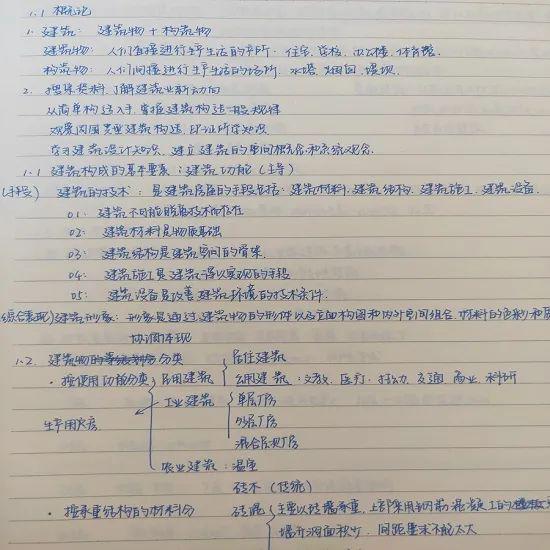 1.1 概论
1. 建筑: 建筑物 + 构筑物
建筑物: 人们直接进行生产生活的场所. 住宅、学校、办公楼、体育馆.
构筑物: 人们间接进行生产生活的场所. 水塔、烟囱、堤坝.
2. 搜集资料, 了解建筑业新动向
从简单构造入手, 掌握建筑构造一般规律
观察周围典型建筑构造, 印证所学知识
学习建筑设计知识, 建立建筑的空间概念和系统观念.
1.1 建筑构成的基本要素: 建筑功能 (主导)
(手段) 建筑的技术: 是建造房屋的手段包括: 建筑材料、建筑结构、建筑施工、建筑设备.
01: 建筑不可能脱离技术而存在
02: 建筑材料是物质基础
03: 建筑结构是建筑空间的骨架.
04: 建筑施工是建筑得以实现的手段
05: 建筑设备是改善建筑环境的技术条件.
(综合表现) 建筑形象: 形象是通过建筑物的形体以及立面构图和内外空间组合, 材料的色彩和质
协调体现
1.2. 建筑物的分类
居住建筑
· 按使用功能分类 民用建筑 公用建筑: 文教、医疗、托幼、交通、商业、科研
工业建筑 单层厂房
生产用火房 多层厂房
混合层次厂房
农业建筑: 温室
砖木 (传统)
· 按承重结构的材料分 砖混 主要以砖墙承重, 上部采用钢筋混凝土的
墙开洞面积少, 间距基本不能太大